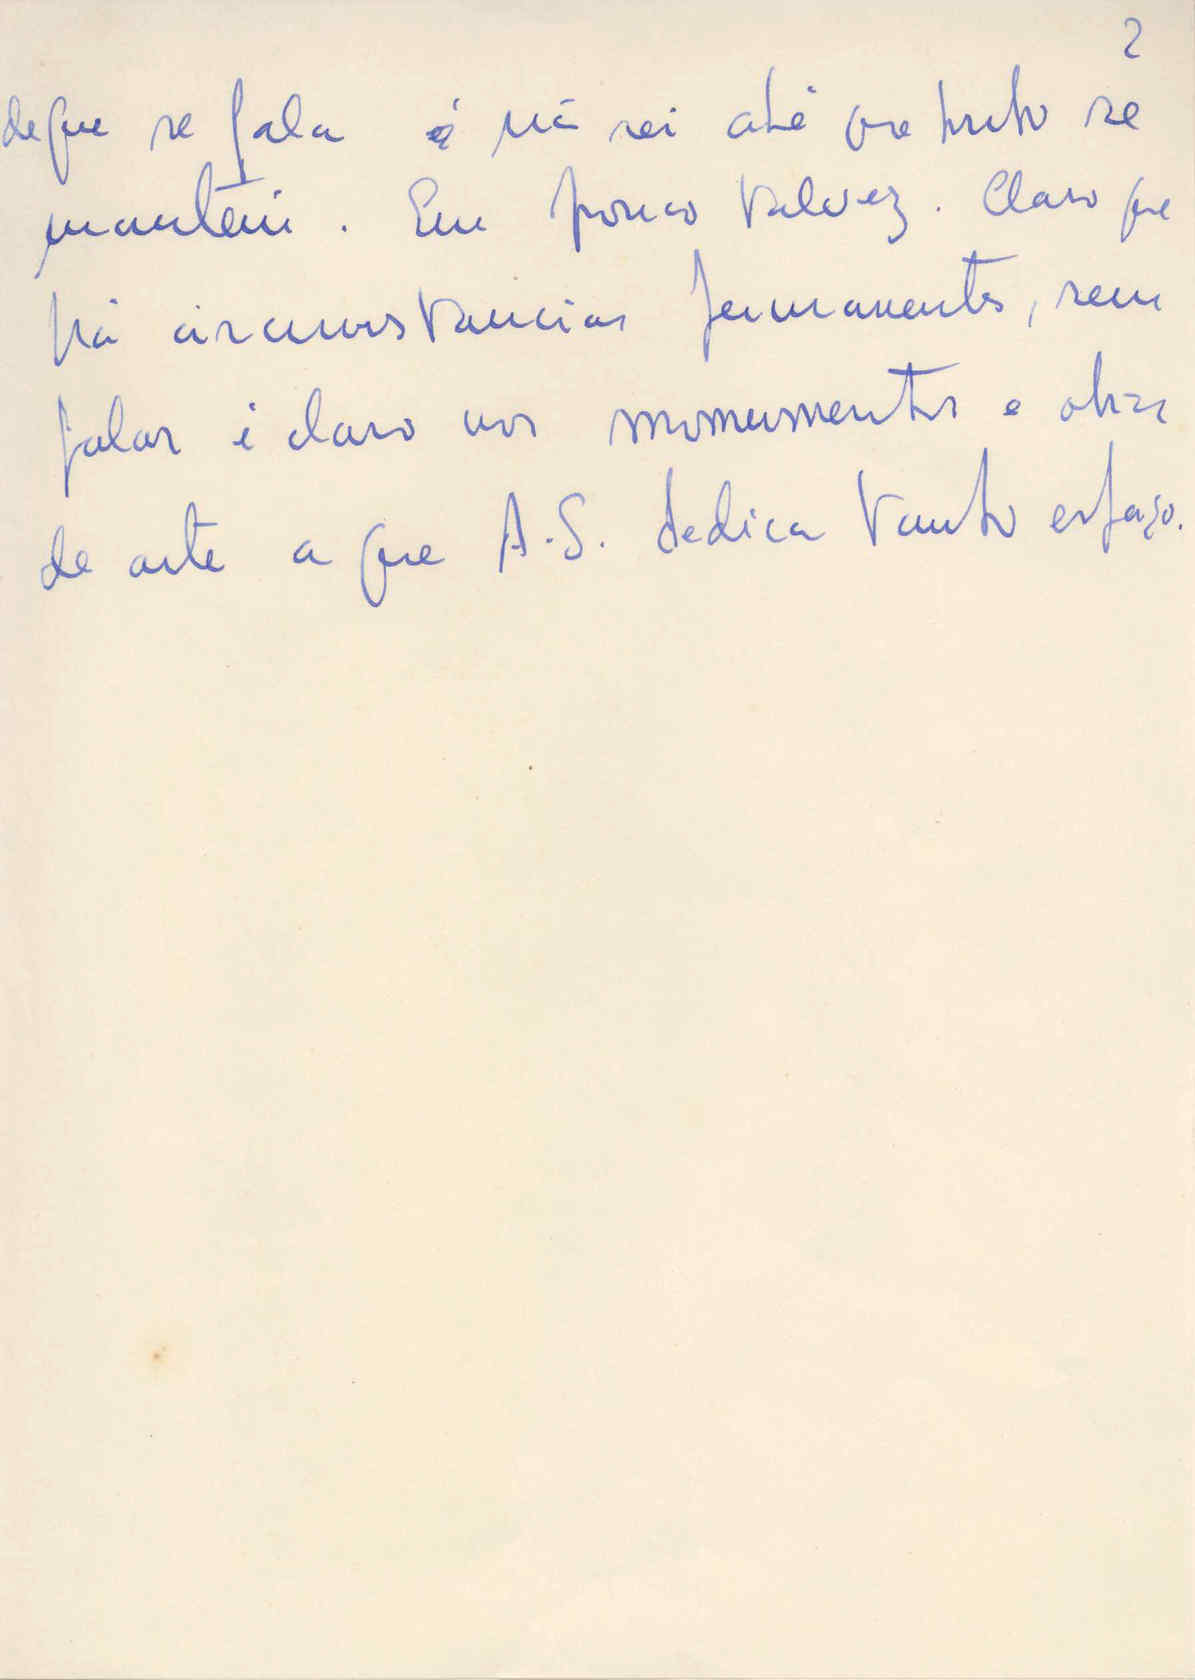 2
de que se fala e não sei até que ponto se
mantém. Em pouco talvez. Claro que
há circunstancias permanentes, sem
falar é claro nos monumentos e obras
de arte a que A.S. dedica tanto espaço.